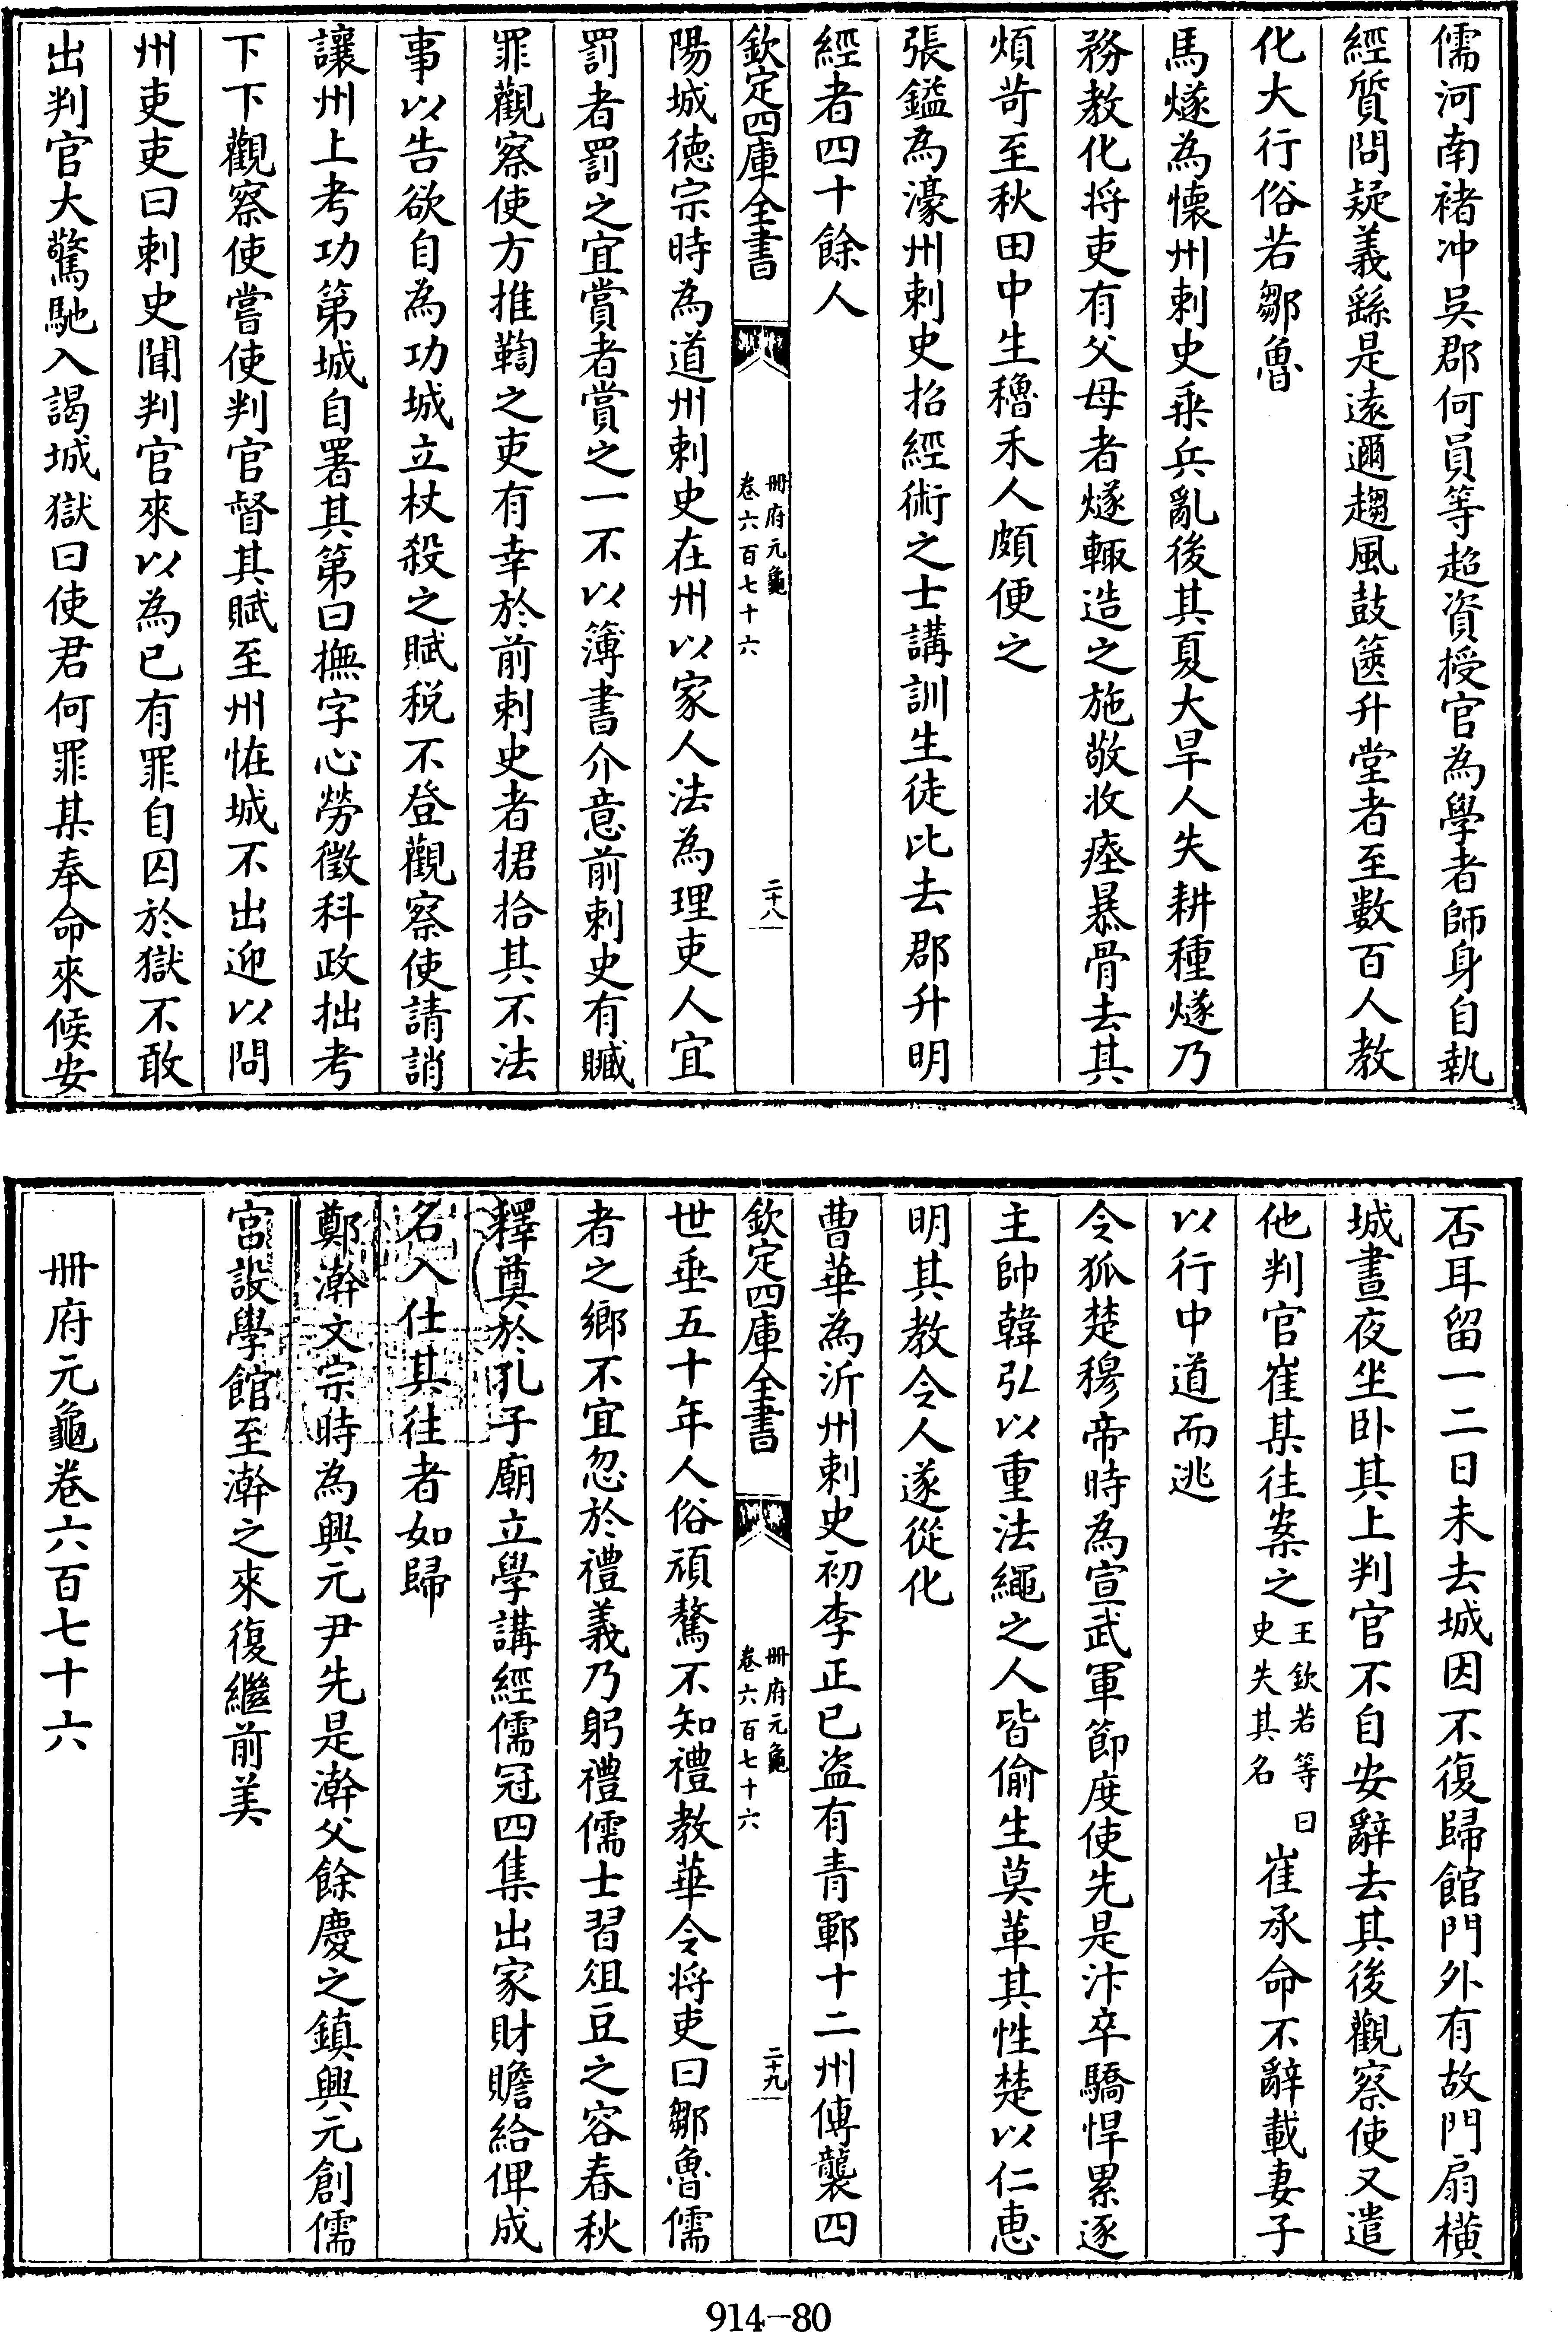 儒河南褚冲吳郡何員等超資授官為學者師身自執
經質問疑義繇是遠邇趨風鼓篋升堂者至數百人教
化大行俗若鄒魯
馬燧為懷州刺史乘兵亂後其夏大旱人失耕種燧乃
務教化将吏有父母者燧輙造之施敬收瘞暴骨去其
煩苛至秋田中生穭禾人頗便之
張鎰為濠州刺史招經術之士講訓生徒比去郡升明
經者四十餘人
欽定四庫全書
冊府元龜
卷六百七十六
二十八
陽城德宗時為道州刺史在州以家人法為理吏人宜
罰者罰之宜賞者賞之一不以簿書介意前刺史有贓
罪觀察使方推鞫之吏有幸於前刺史者捃拾其不法
事以告欲自為功城立杖殺之賦税不登觀察使請誚
讓州上考功第城自署其第曰撫字心勞徵科政拙考
下下觀察使嘗使判官督其賦至州恠城不出迎以問
州吏吏曰刺史聞判官來以為已有罪自囚於獄不敢
出判官大驚馳入謁城獄曰使君何罪某奉命來候安
否耳留一二日未去城因不復歸館門外有故門扇橫
城晝夜坐卧其上判官不自安辭去其後觀察使又遣
他判官崔某往案之王欽若等曰史失其名崔承命不辭載妻子
以行中道而逃
令狐楚穆帝時為宣武軍節度使先是汴卒驕悍累逐
主帥韓弘以重法繩之人皆偷生莫革其性楚以仁恵
明其教令人遂從化
曹華為沂州刺史初李正已盗有青鄆十二州傳襲四
欽定四庫全書
冊府元龜
卷六百七十六
二十九
世垂五十年人俗頑驁不知禮教華令将吏曰鄒魯儒
者之鄉不宜忽於禮義乃躬禮儒士習俎豆之容春秋
釋奠於孔子廟立學講經儒冠四集出家財贍給俾成
名入仕其往者如歸
鄭澣文宗時為興元尹先是澣父餘慶之鎮興元創儒
宫設學館至澣之來復繼前美
冊府元龜卷六百七十六
914-80